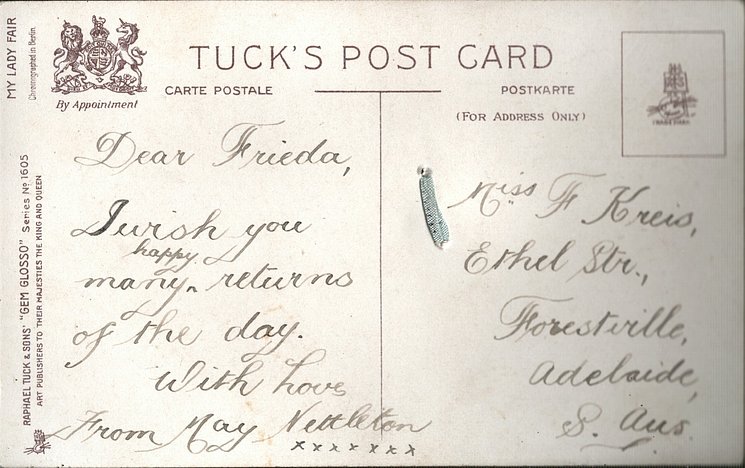 TUCK'S POST CARD
CARTE POSTALE
POSTKARTE
(FOR ADDRESS ONLY)
By Appointment
MY LADY FAIR
Chromographed in Berlin
RAPHAEL TUCK & SONS' "GEM GLOSSO" Series Nº 1605
ART PUBLISHERS TO THEIR MAJESTIES THE KING AND QUEEN
Dear Frieda,
I wish you
happy
many ^ returns
of the day.
With Love
From May Nettleton
x x x x x x x
Miss F Kreis,
Ethel Str.,
Forestville,
Adelaide,
S. Aus.
TRADE MARK